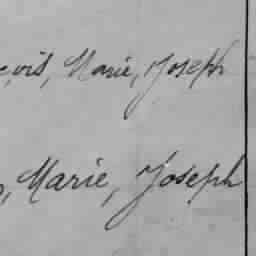 Marie, Joseph
, Marie, Joseph